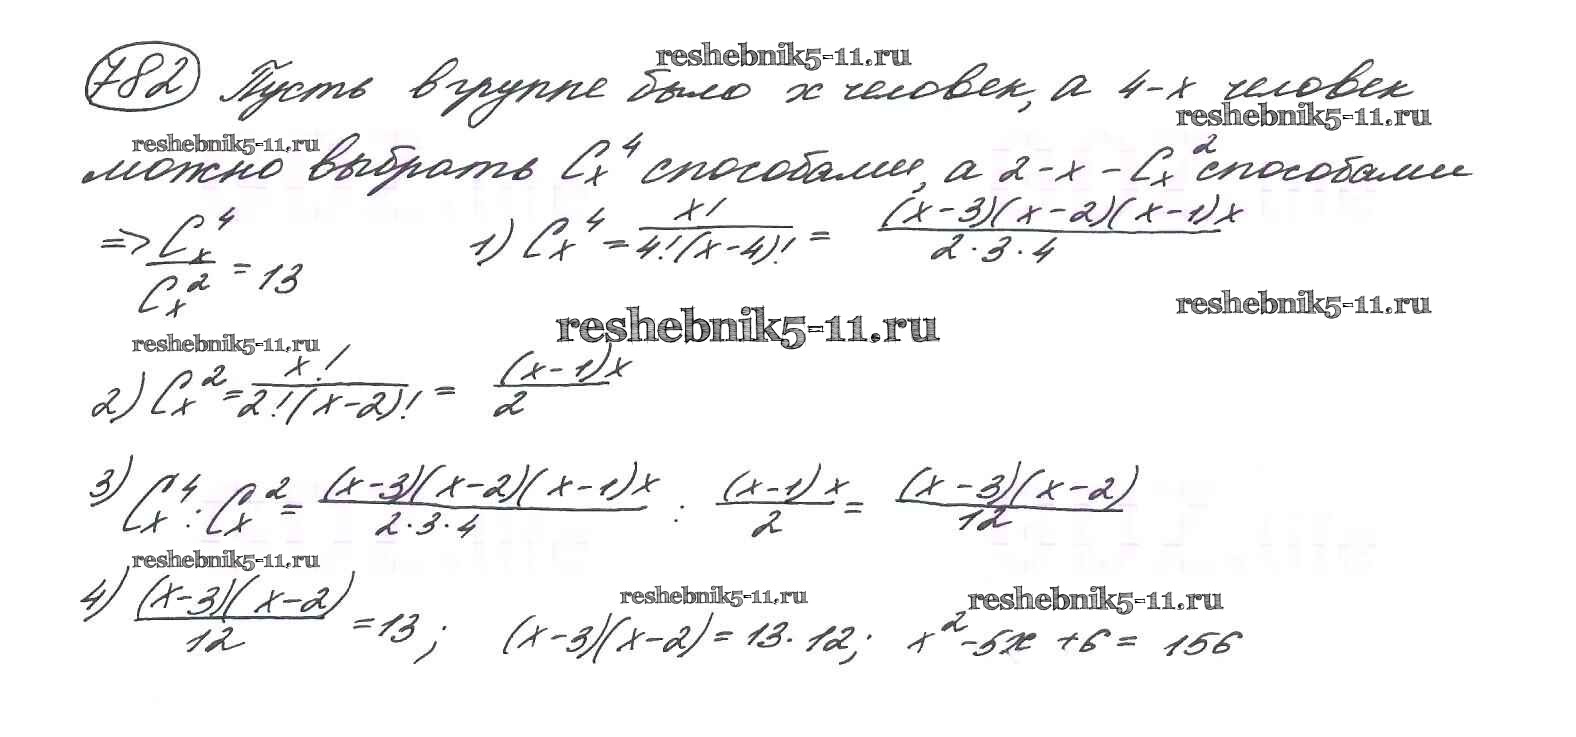 reshebnik5-11.ru
782 Пусть в группе было x человек, а 4-х человек
reshebnik5-11.ru
reshebnik5-11.ru
можно выбрать C_x^4 способами, а 2-х - C_x^2 способами
=> C_x^4 / C_x^2 = 13   1) C_x^4 = x! / 4!(x-4)! = (x-3)(x-2)(x-1)x / 2·3·4
reshebnik5-11.ru
reshebnik5-11.ru
reshebnik5-11.ru
2) C_x^2 = x! / 2!(x-2)! = (x-1)x / 2
3) C_x^4 : C_x^2 = (x-3)(x-2)(x-1)x / 2·3·4 : (x-1)x / 2 = (x-3)(x-2) / 12
reshebnik5-11.ru
reshebnik5-11.ru
reshebnik5-11.ru
4) (x-3)(x-2) / 12 = 13; (x-3)(x-2) = 13·12; x^2 -5x +6 = 156